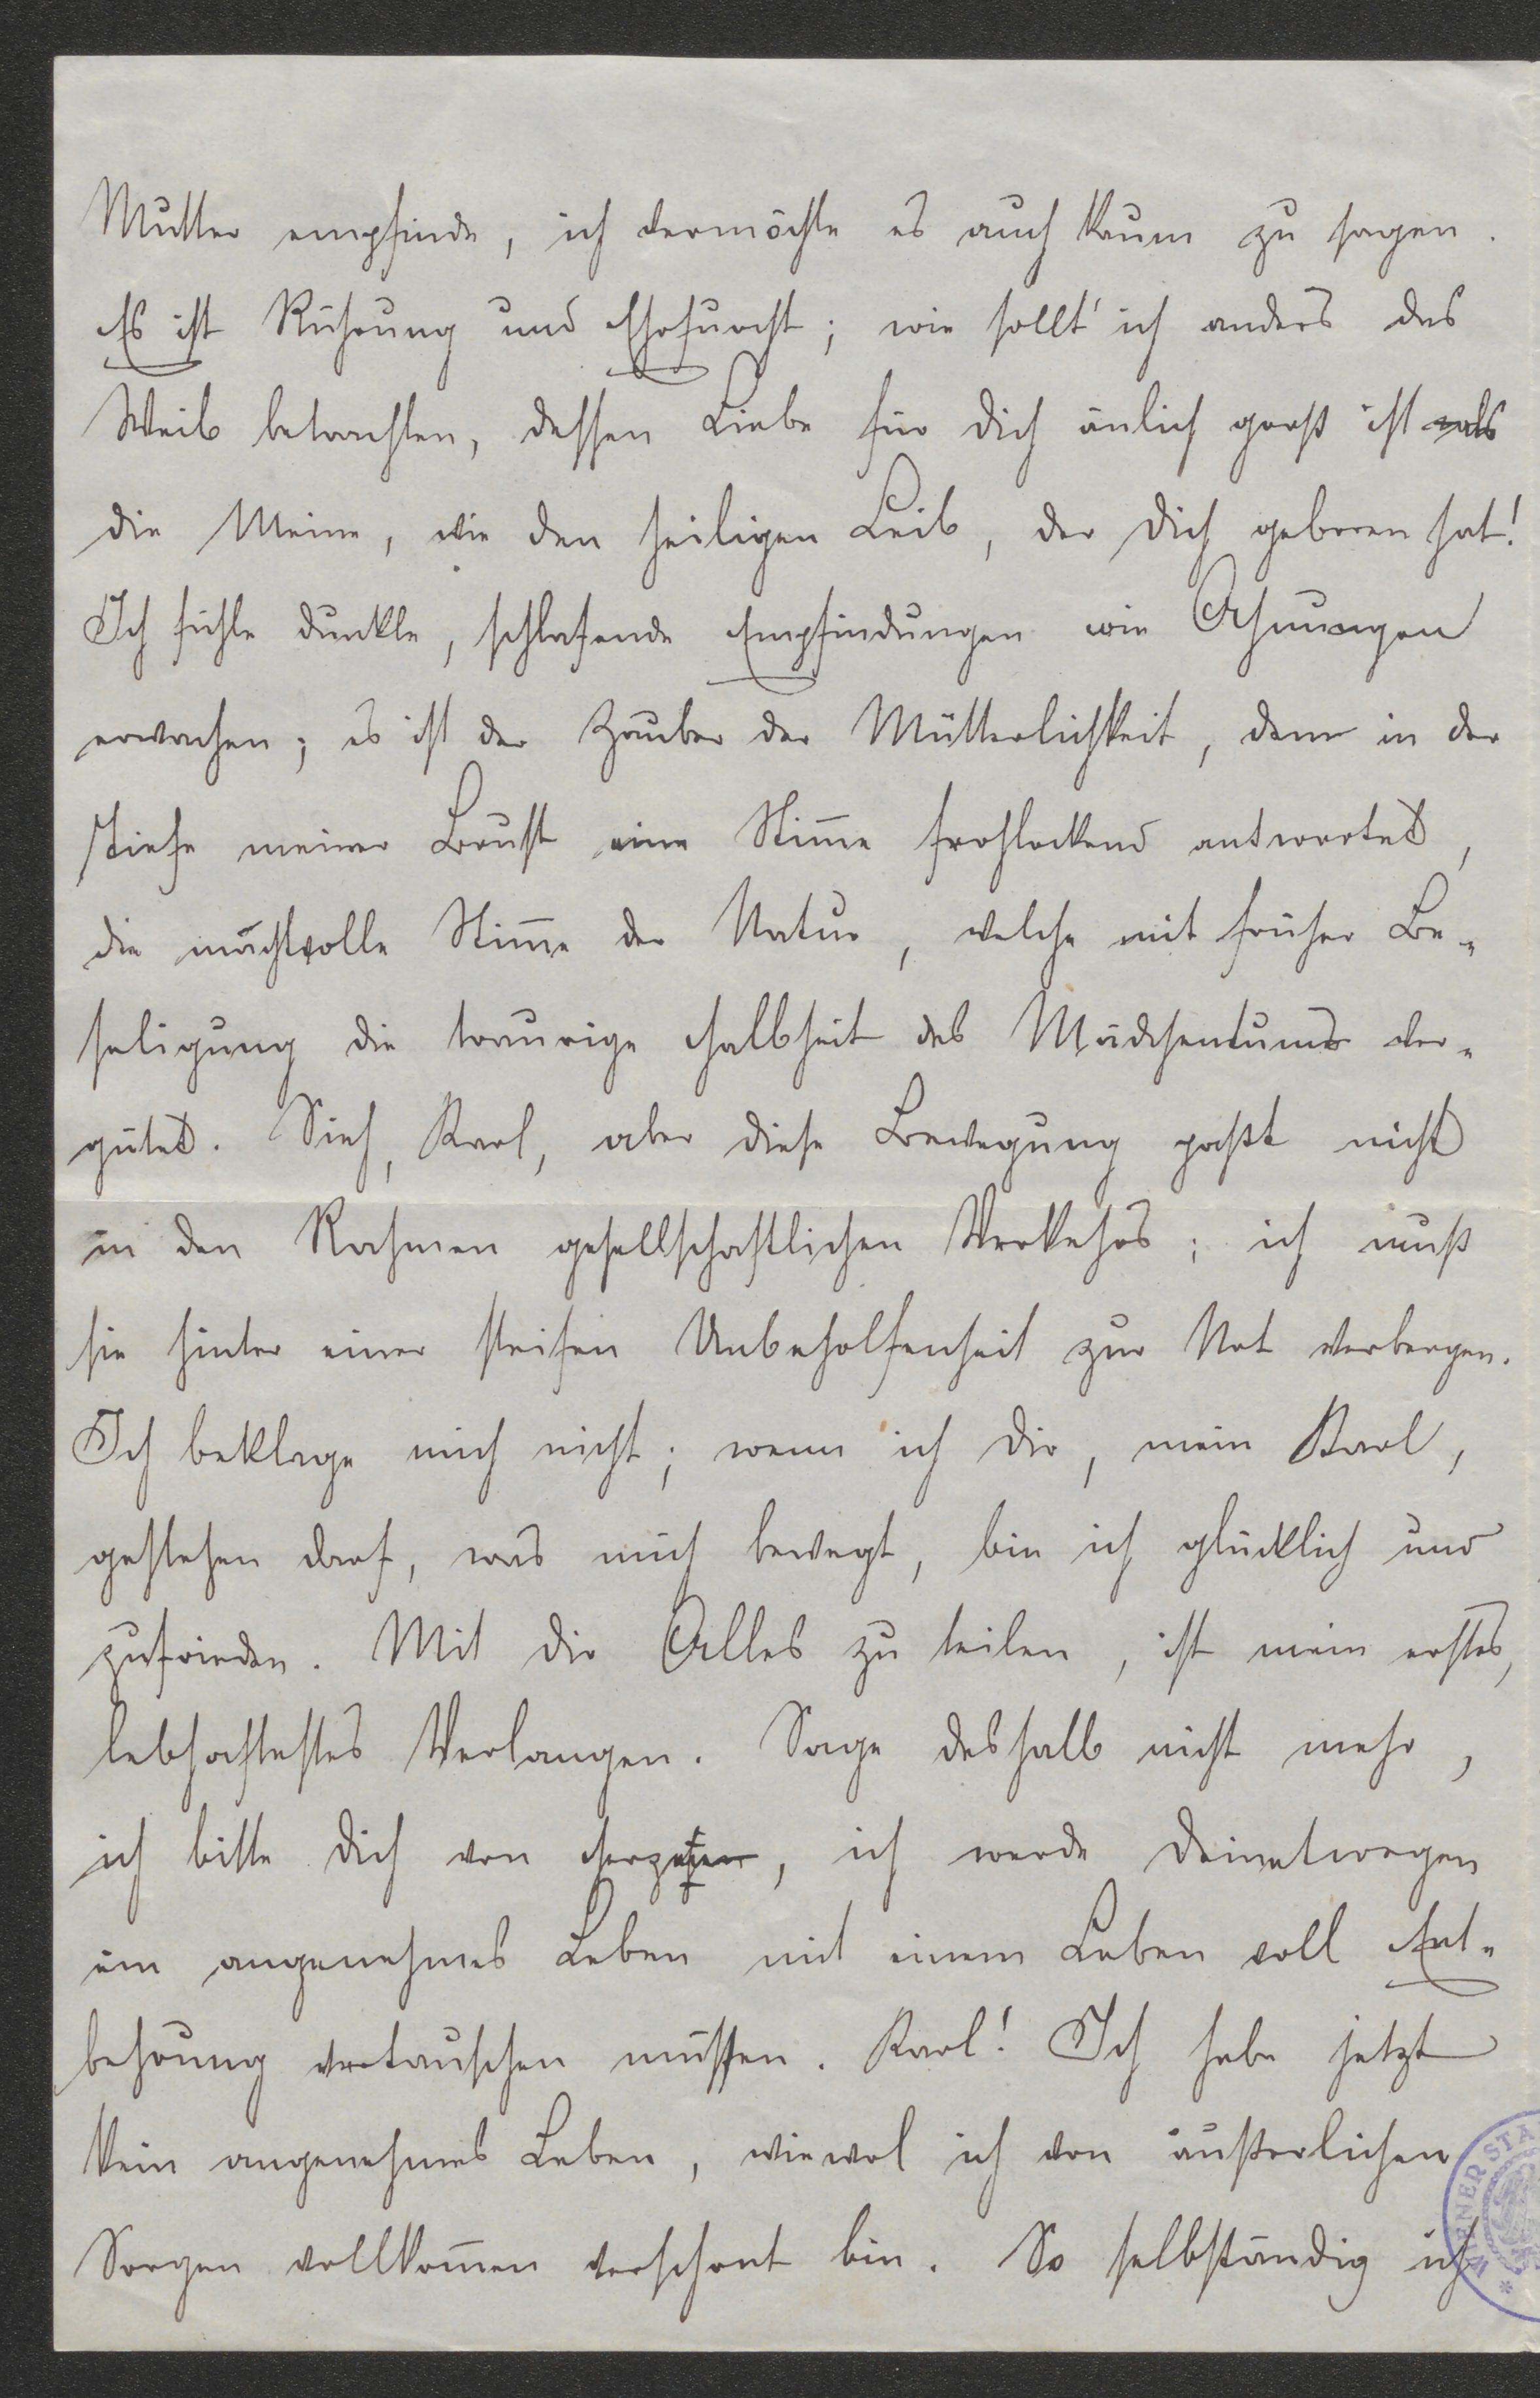 Mutter empfinde, ich vermöchte es auch kaum zu sagen.
Es ist Rührung und Ehrfurcht; wie sollt' ich anders das
Weib betrachten, dessen Liebe für Dich änlich groß ist als
die Meine, wie den heiligen Leib, der Dich geboren hat!
Ich fühle dunkle, schlafende Empfindungen wie Ahnungen
erwachen; es ist der Zauber der Mütterlichkeit, dem in der
Tiefe meiner Brust eine Stim̄e frohlockend antwortet,
die machtvolle Stim̄e der Natur, welche mit früher Be-
seligung die traurige Halbheit des Mädchentums ver-
gütet. Sieh, Karl, aber diese Bewegung paßt nicht
in den Rahmen gesellschaftlichen Verkehrs; ich muß
sie hinter einer steifen Unbeholfenheit zur Not verbergen.
Ich beklage mich nicht; wenn ich Dir, mein Karl,
gestehen darf, was mich bewegt, bin ich glücklich und
zufrieden. Mit Dir Alles zu teilen, ist mein erstes,
lebhaftestes Verlangen. Sage deshalb nicht mehr,
ich bitte Dich von Herzen, ich werde Deinetwegen
ein angenehmes Leben mit einem Leben voll Ent-
behrung vertauschen müssen. Karl! Ich habe jetzt
kein angenehmes Leben, wiewol ich von äußerlichen
Sorgen vollkom̄en verschont bin. So selbständig ich